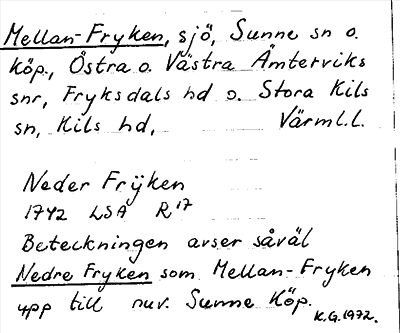 Mellan-Fryken, sjö, Sunne sn o.
köp., Östra o. Västra Ämterviks
snr, Fryksdals hd o. Stora Kils
sn, Kils hd, Värml.l.
Neder Frÿken
1742 LSA R17
Beteckningen avser såväl
Nedre Fryken som Mellan-Fryken
upp till nuv. Sunne Köp.
K.G.1972.